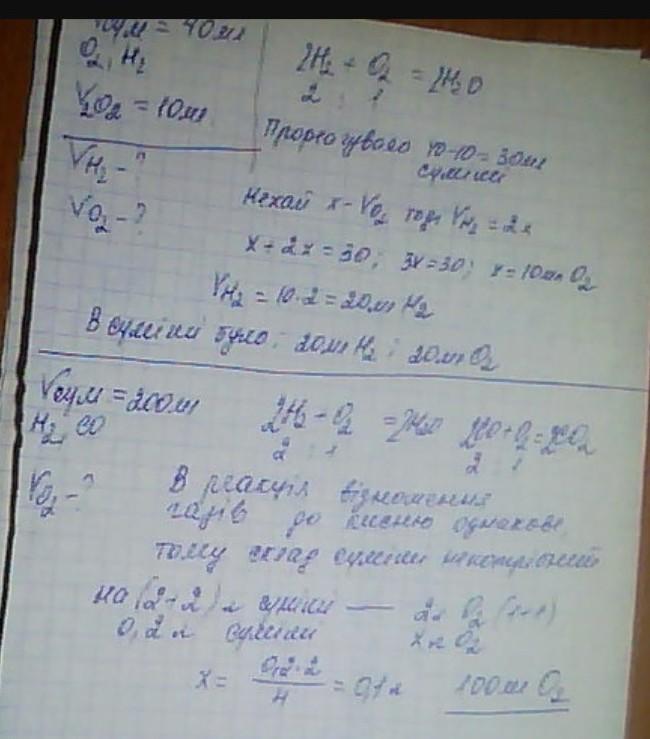 Vсум = 40мл
O₂, H₂
VзO₂ = 10мл
VH₂ - ?
VO₂ - ?
2H₂ + O₂ = 2H₂O
2 : 1
Прореагувало 40-10 = 30мл
суміші
Нехай x - VO₂ тоді VH₂ = 2x
x + 2x = 30; 3x = 30; x = 10мл O₂
VH₂ = 10·2 = 20мл H₂
В суміші було: 20мл H₂ і 20мл O₂
Vсум = 200мл
H₂, CO
VO₂ - ?
2H₂ - O₂ = 2H₂O 2CO + O₂ = 2CO₂
2 : 1 2 1
В реакція відношення
газів до кисню однакове,
тому склад суміші непотрібний
на (2+2) л суміші — 2л O₂ (1+1)
0,2 л суміші x л O₂
x = 0,2·2 / 4 = 0,1 л 100мл O₂